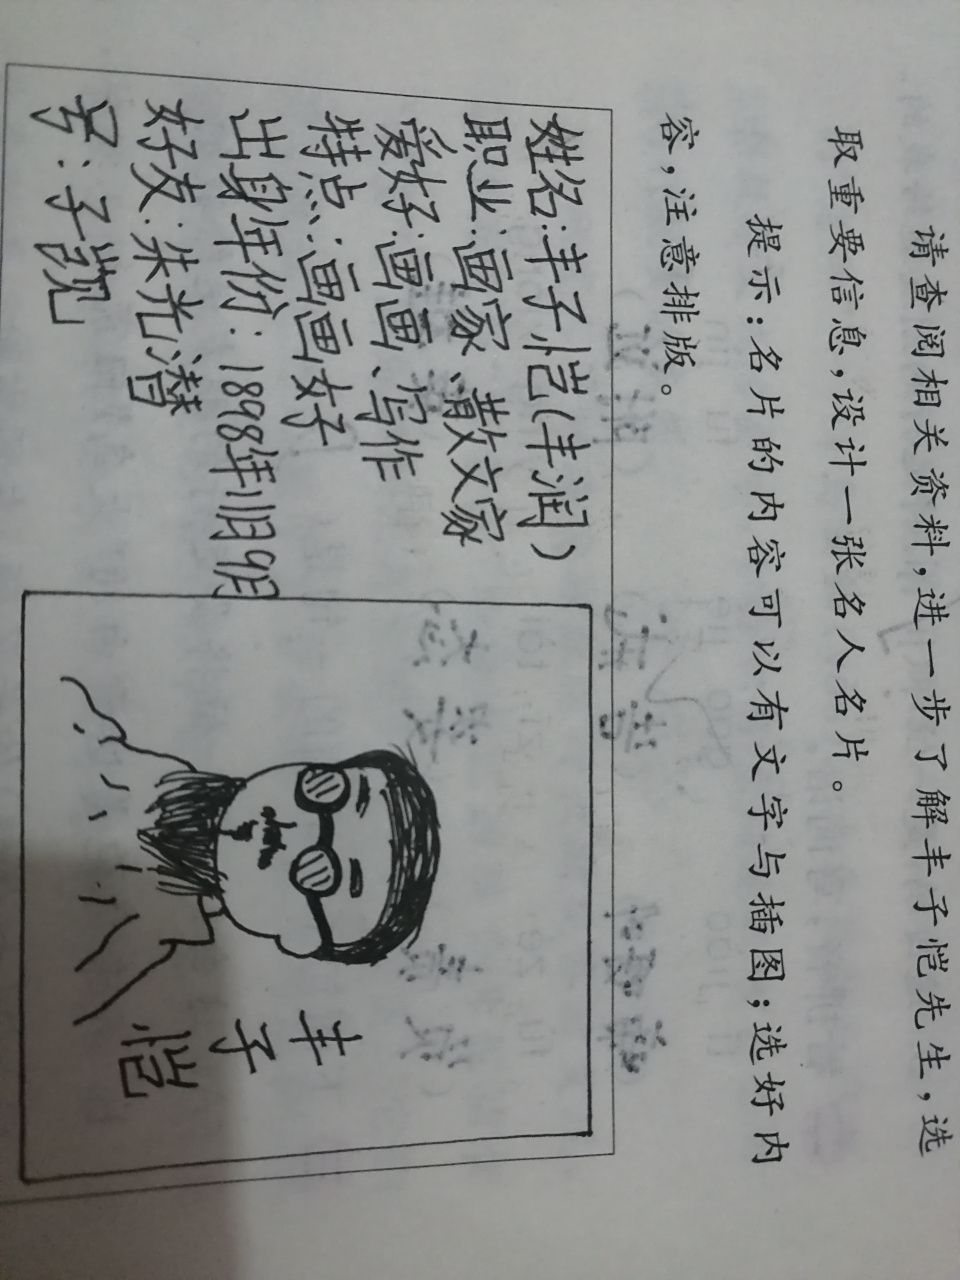 请查阅相关资料，进一步了解丰子恺先生，选
取重要信息，设计一张名人名片。
提示：名片的内容可以有文字与插图；选好内
容，注意排版。
姓名：丰子恺（丰润）
职业：画家、散文家
爱好：画画、写作
特点：画画好
出身年份：1898年11月9月
好友：朱光潜
号：子觊
丰
子
恺